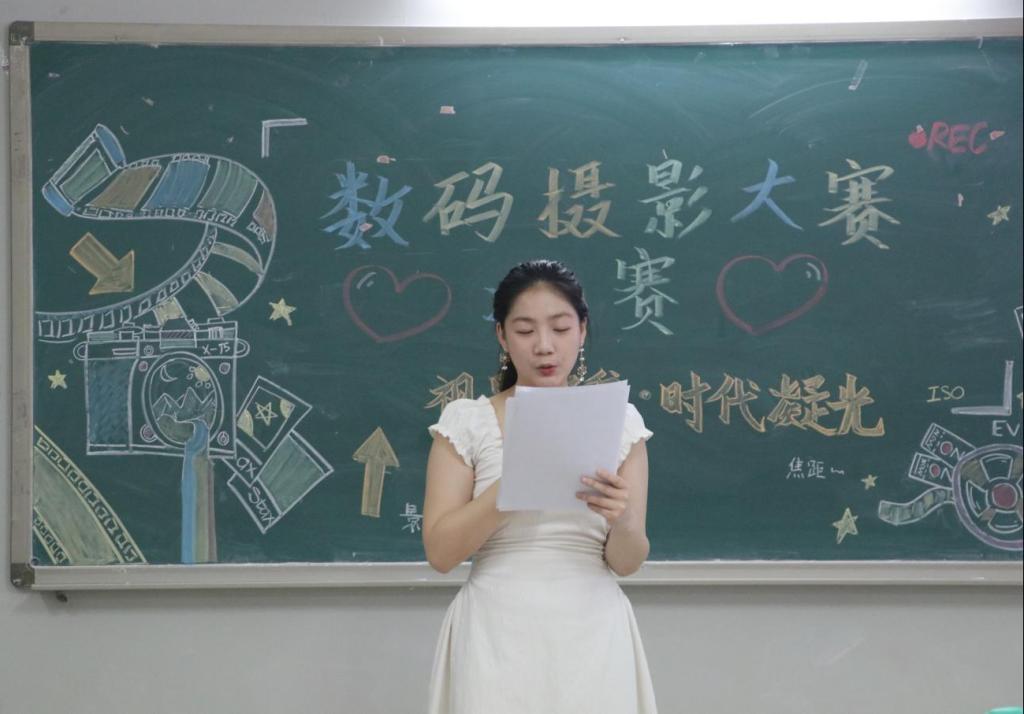 REC
数码摄影大赛
赛
X-T5
视
·时代凝光
ISO
EV
焦距~
景